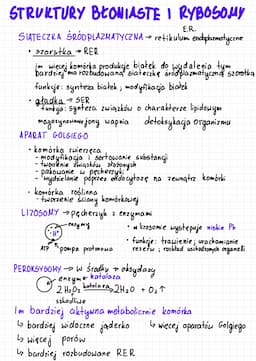 STRUKTURY BŁONIASTE I RYBOSOMY
E.R.
SIATECZKA ŚRÓDPLAZMATYCZNA → retikulum endoplazmatyczne
• szorstka → RER
im więcej komórka produkuje białek do wydalenia tym
bardziej ma rozbudowaną siateczkę śródplazmatyczną szorstką
funkcje: synteza białek, modyfikacja białek
• gładka → SER
funkcje: synteza związków o charakterze lipidowym
magazynowanie jonów wapnia detoksykacja organizmu
APARAT GOLGIEGO
• komórka zwierzęca
- modyfikacja i sortowanie substancji
- tworzenie związków złożonych
- pakowanie w pęcherzyki
- wydzielanie poprzez egzocytozę na zewnątrz komórki
• komórka roślinna
- tworzenie ściany komórkowej
LIZOSOMY → pęcherzyk z enzymami
enzymy
H⁺
ATP pompa protonowa
• w lizosomie występuje niskie Ph
• funkcje: trawienie, wrachomianie
reszek, rozkład uszkodzonych organelli
PEROKSYSOMY → w środku → oksydazy
enzym katalaza
2H₂O₂ katalaza → 2H₂O + O₂↑
szkodliwe
Im bardziej aktywna metabolicznie komórka
↳ bardziej widoczne jąderko ↳ więcej aparatów Golgiego
↳ więcej porów
↳ bardziej rozbudowane RER